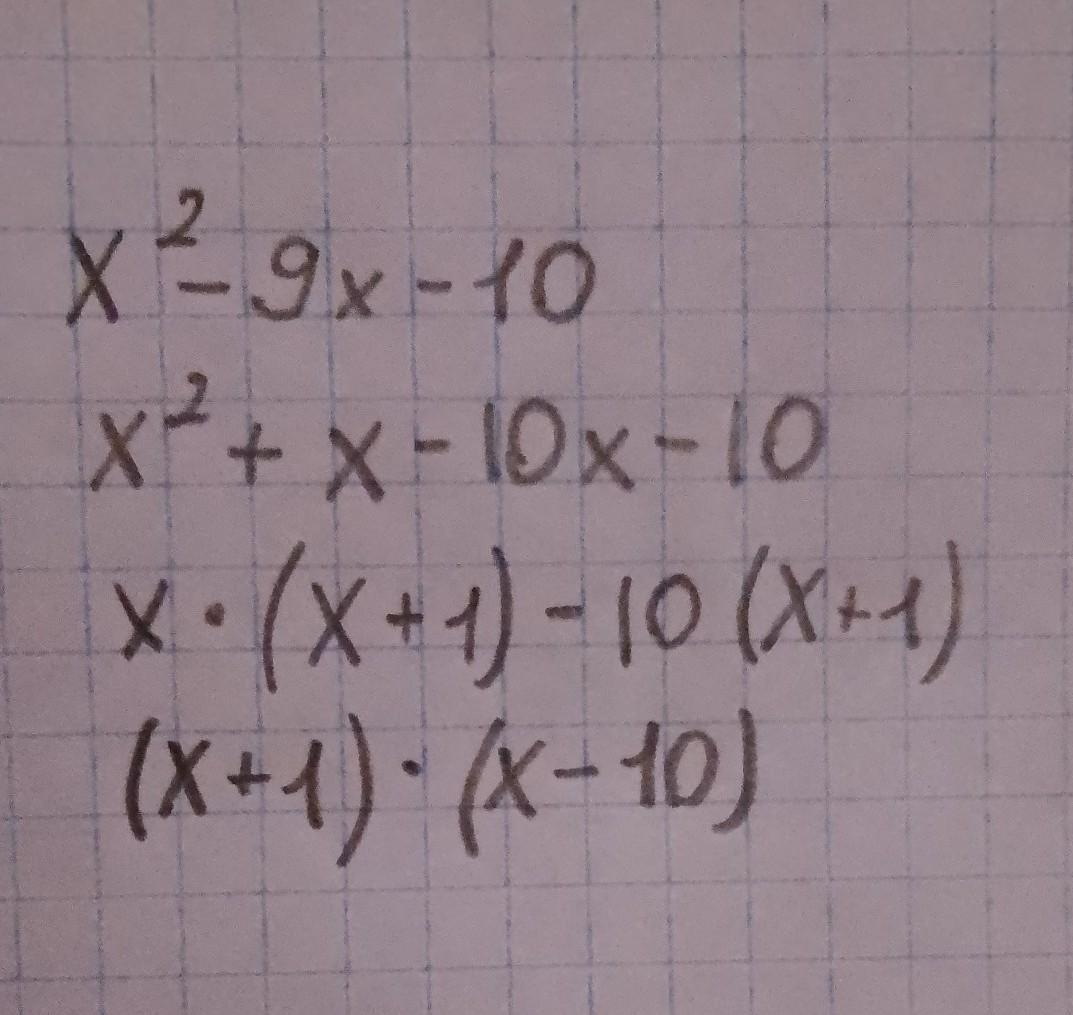 x² - 9x - 10
x² + x - 10x - 10
x · (x + 1) - 10 (x + 1)
(x + 1) · (x - 10)